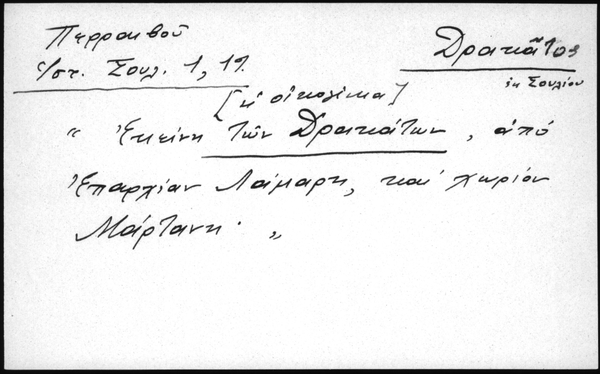 Περραιβού
Ἱστ. Σουλ. 1, 17.
Δρακᾶτος
ἐκ Σουλίου
[ἡ οἰκογένεια]
" Ἐκείνη τῶν Δρακάτων, ἀπό
Ἐπαρχίαν Λάμαρη, καί χωρίον
Μάρτανη. "